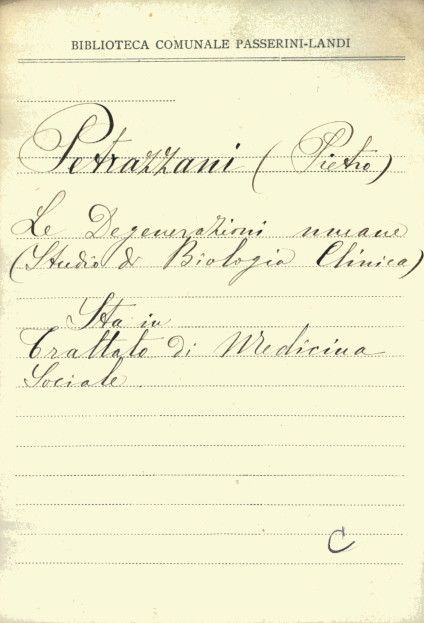 BIBLIOTECA COMUNALE PASSERINI-LANDI
Petrazzani (Pietro)
Le Degenerazioni umane
(Studio di Biologia Clinica)
Sta in
Trattato di Medicina
Sociale.
C